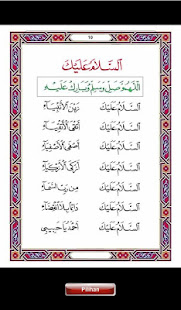 اَلسَّلَامُ عَلَيْكَ
اَللّٰهُمَّ صَلِّ وَسَلِّمْ وَبَارِكْ عَلَيْهِ
اَلسَّلَامُ عَلَيْكَ زَيْنَ الْأَنْبِيَاءِ
اَلسَّلَامُ عَلَيْكَ أَتْقَى الْأَتْقِيَاءِ
اَلسَّلَامُ عَلَيْكَ أَصْفَى الْأَصْفِيَاءِ
اَلسَّلَامُ عَلَيْكَ أَزْكَى الْأَزْكِيَاءِ
اَلسَّلَامُ عَلَيْكَ مِنْ رَبِّ السَّمَاءِ
اَلسَّلَامُ عَلَيْكَ دَائِمًا بِلَا انْقِضَاءِ
اَلسَّلَامُ عَلَيْكَ أَحْمَدُ يَا حَبِيبِي
Pilihan